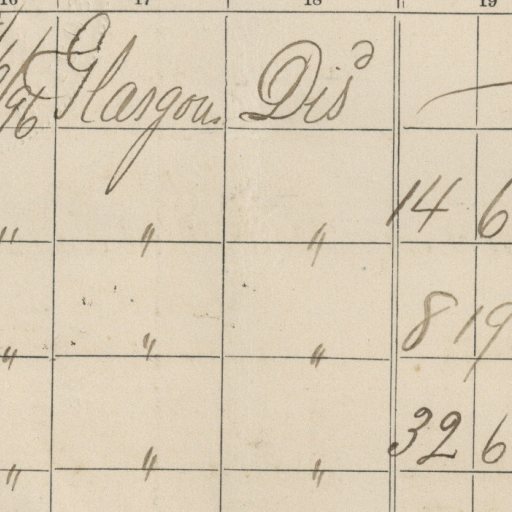 16 17 18 19
96 Glasgow Dis^d —
" " " 14 6
" " " 8 19
" " " 32 6